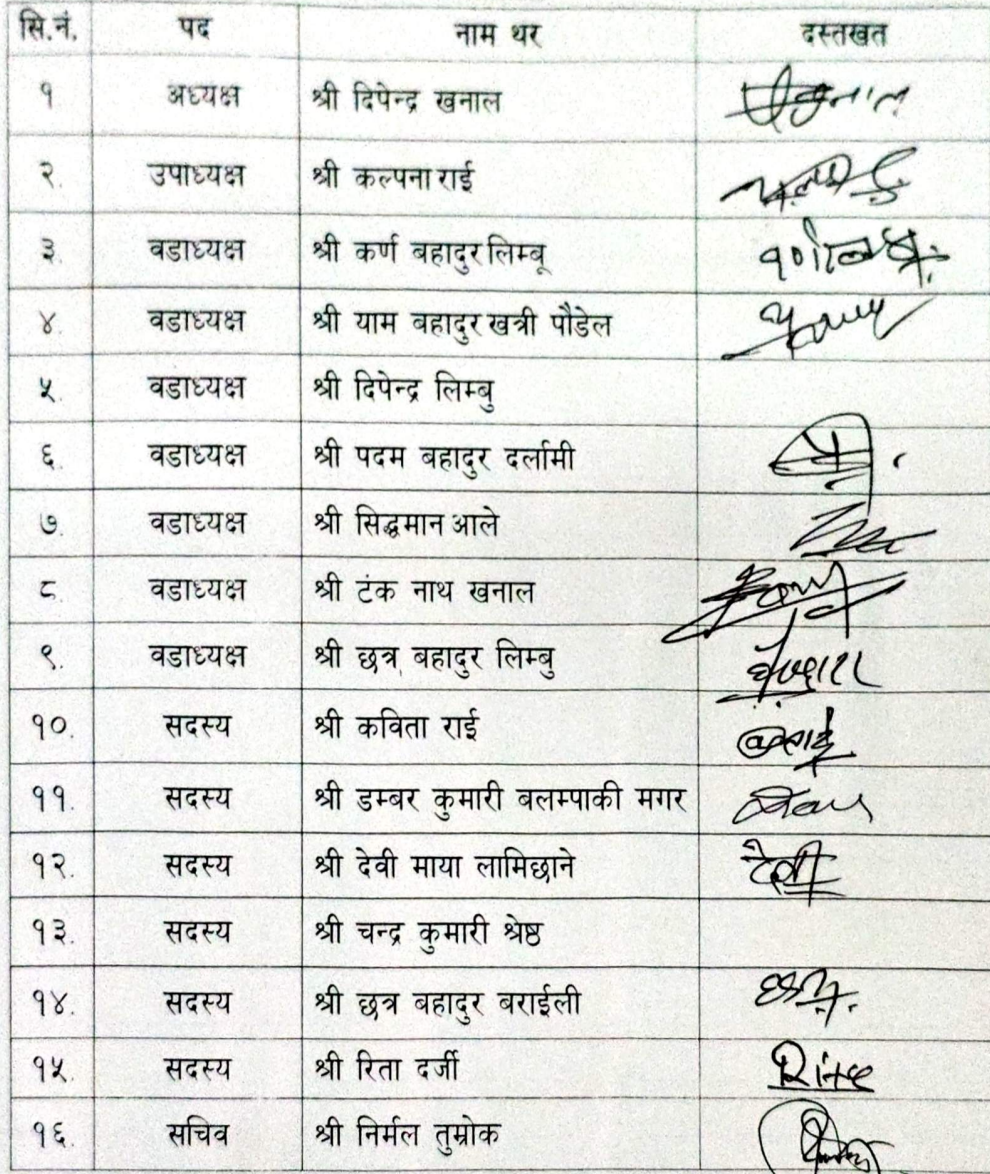 सि.नं. पद नाम थर दस्तखत
१ अध्यक्ष श्री दिपेन्द्र खनाल
२. उपाध्यक्ष श्री कल्पना राई
३ वडाध्यक्ष श्री कर्ण बहादुर लिम्बू
४ वडाध्यक्ष श्री याम बहादुर खत्री पौडेल
५ वडाध्यक्ष श्री दिपेन्द्र लिम्बु
६. वडाध्यक्ष श्री पदम बहादुर दर्लामी
७. वडाध्यक्ष श्री सिद्धमान आले
८. वडाध्यक्ष श्री टंक नाथ खनाल
९. वडाध्यक्ष श्री छत्र बहादुर लिम्बु
१०. सदस्य श्री कविता राई
११. सदस्य श्री डम्बर कुमारी बलम्पाकी मगर
१२. सदस्य श्री देवी माया लामिछाने देवी
१३. सदस्य श्री चन्द्र कुमारी श्रेष्ठ
१४. सदस्य श्री छत्र बहादुर बराईली
१५. सदस्य श्री रिता दर्जी Rita
१६. सचिव श्री निर्मल तुम्रोक